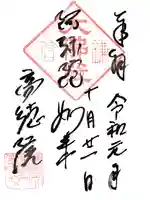 奉拝
令和元年
十月廿一日
阿弥陀如来
高徳院